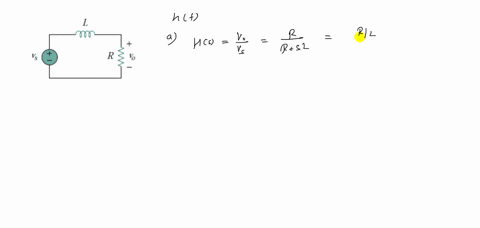 L
v_s + −
R
+ v_o −
h(t)
a) H(s) = V_o/V_s = R/(R+sL) = R/L